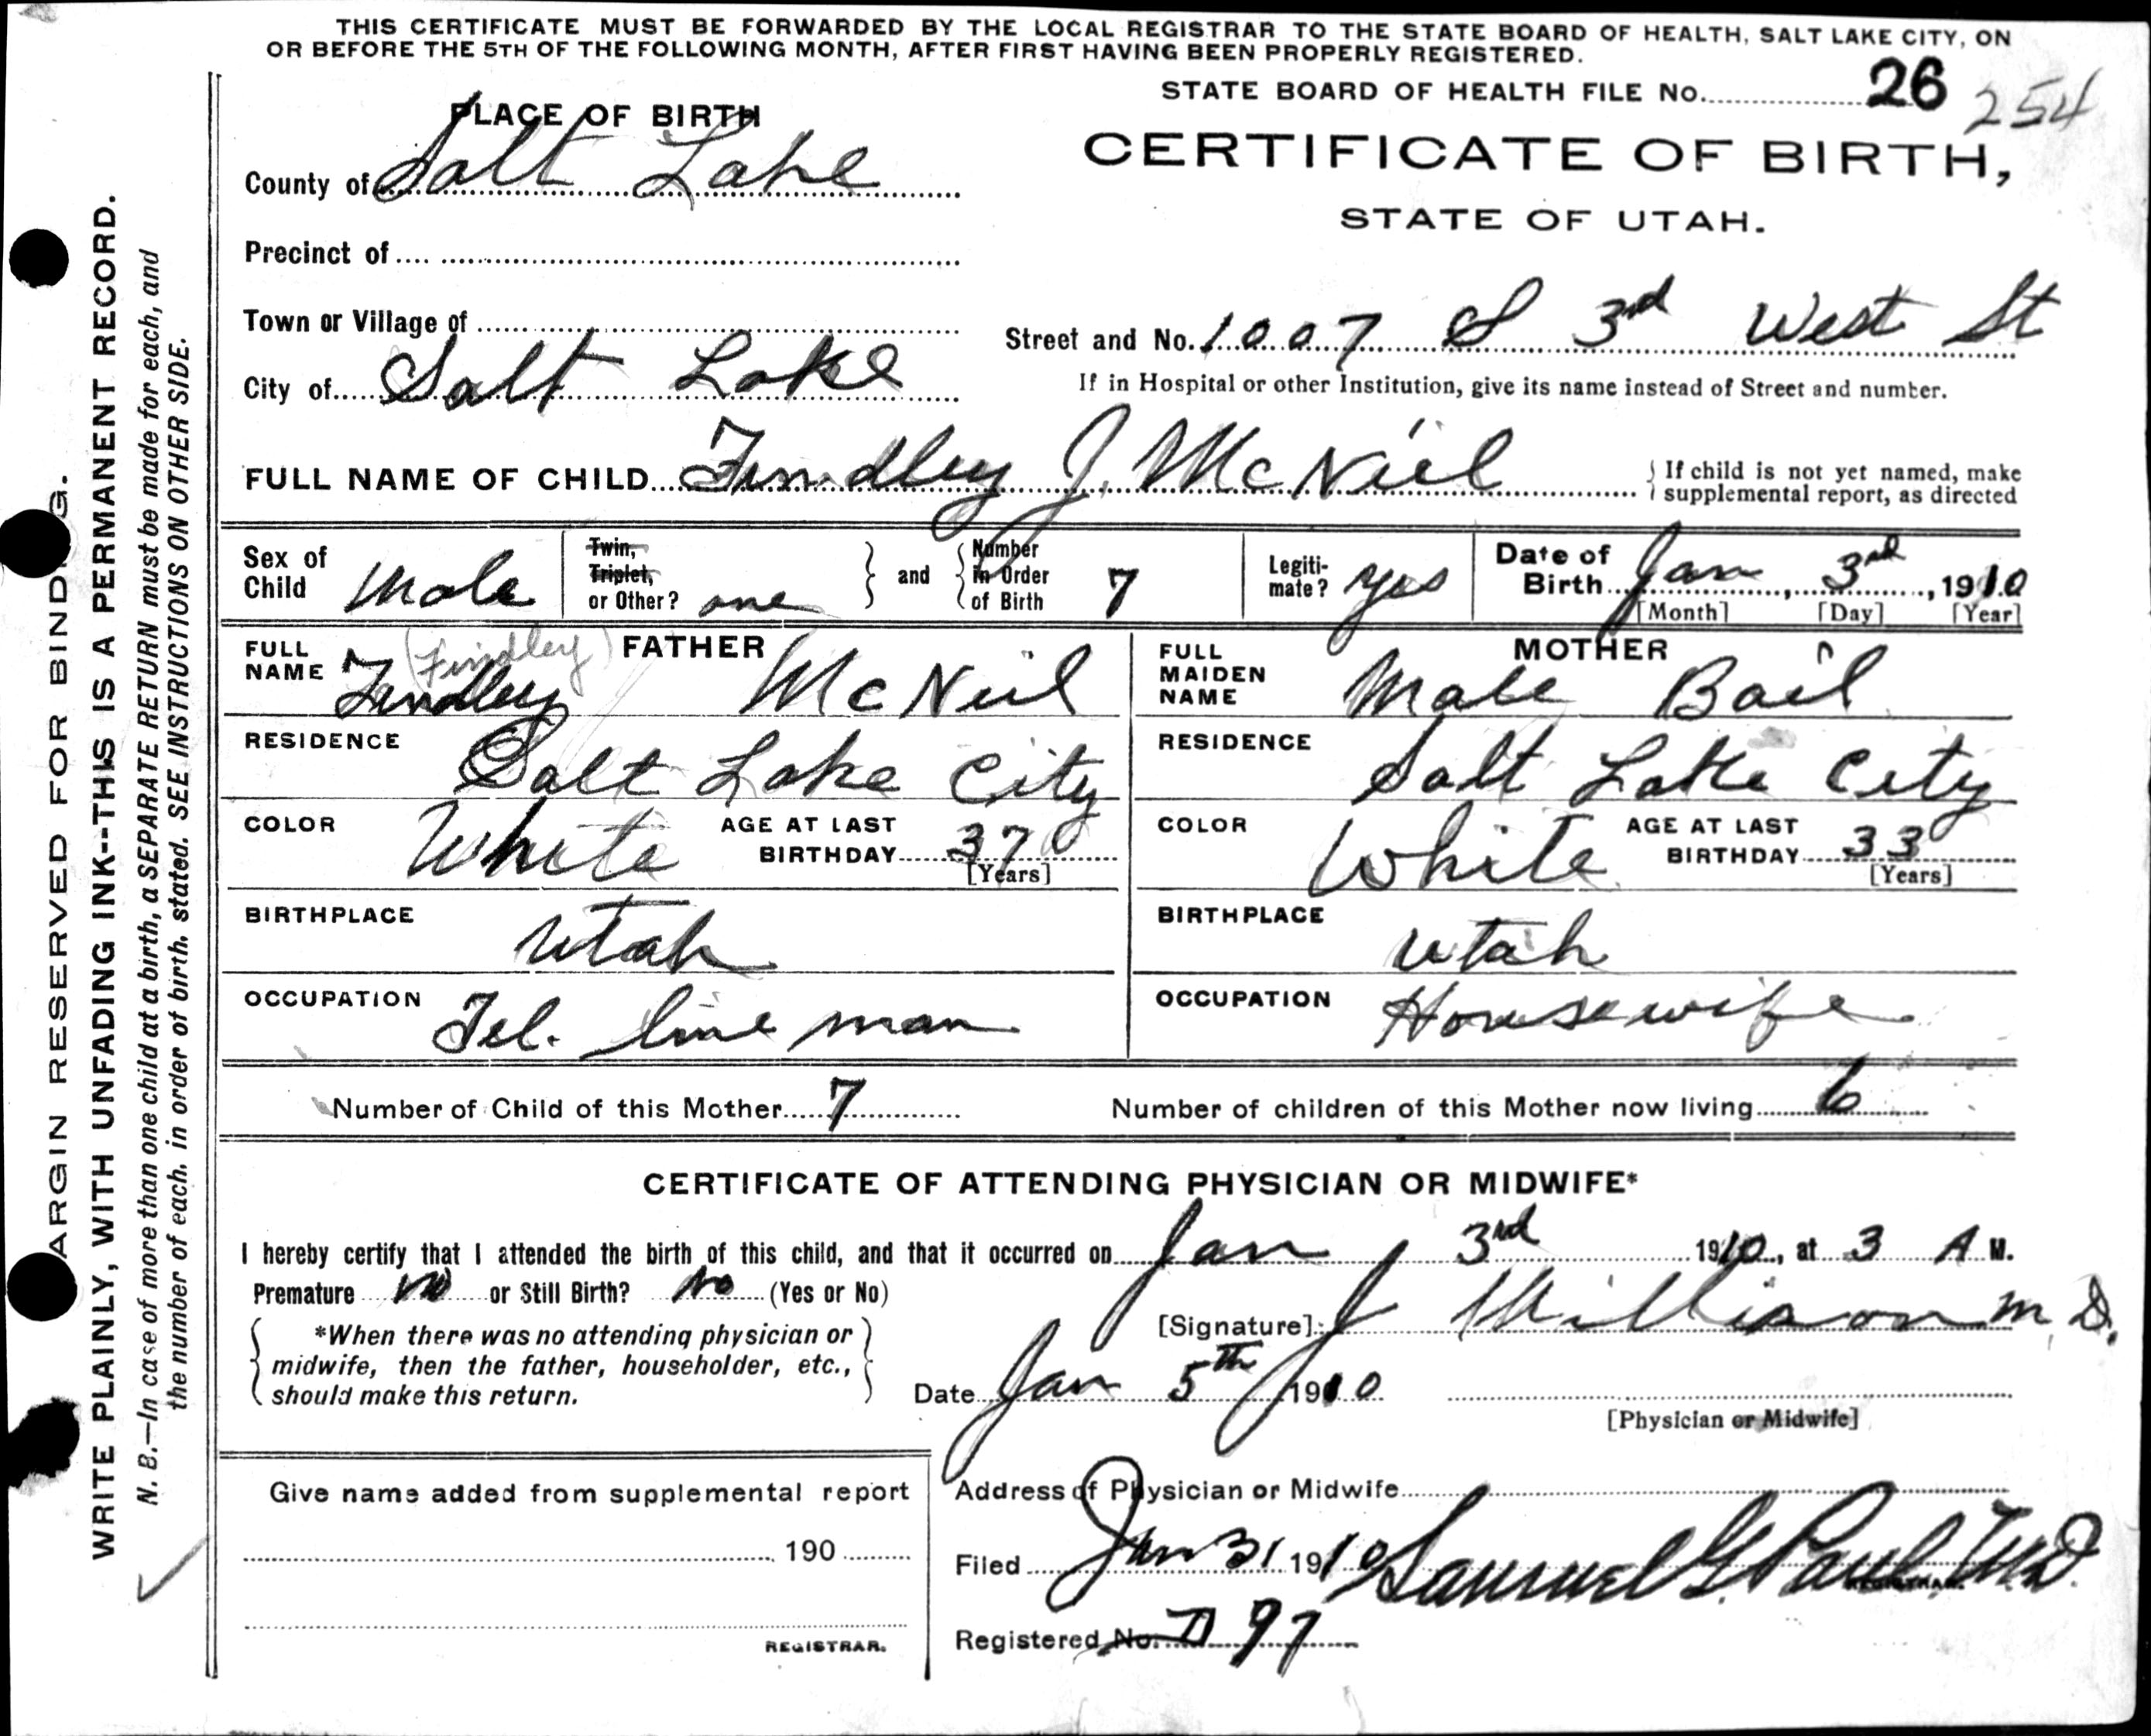 THIS CERTIFICATE MUST BE FORWARDED BY THE LOCAL REGISTRAR TO THE STATE BOARD OF HEALTH, SALT LAKE CITY, ON
OR BEFORE THE 5TH OF THE FOLLOWING MONTH, AFTER FIRST HAVING BEEN PROPERLY REGISTERED.
STATE BOARD OF HEALTH FILE No. 26 254
PLACE OF BIRTH
CERTIFICATE OF BIRTH,
STATE OF UTAH.
County of Salt Lake
Precinct of
Town or Village of
Street and No. 1007 S 3rd West St
City of Salt Lake
If in Hospital or other Institution, give its name instead of Street and number.
FULL NAME OF CHILD Findley J. McNeil
If child is not yet named, make
supplemental report, as directed
Sex of Child Male
Twin, Triplet, or Other? one and Number in Order of Birth 7
Legitimate? yes
Date of Birth Jan, 3rd, 1910
[Month] [Day] [Year]
FATHER
FULL NAME Findley (Findley) McNeil
RESIDENCE Salt Lake City
COLOR White AGE AT LAST BIRTHDAY 37
[Years]
BIRTHPLACE Utah
OCCUPATION Tel. line man
MOTHER
FULL MAIDEN NAME Bail
RESIDENCE Salt Lake City
COLOR White AGE AT LAST BIRTHDAY 33
[Years]
BIRTHPLACE Utah
OCCUPATION Housewife
Number of Child of this Mother 7 Number of children of this Mother now living 6
CERTIFICATE OF ATTENDING PHYSICIAN OR MIDWIFE*
I hereby certify that I attended the birth of this child, and that it occurred on Jan 3rd 1910, at 3 A M.
Premature no or Still Birth? No (Yes or No)
*When there was no attending physician or
midwife, then the father, householder, etc.,
should make this return.
[Signature] J M.D.
Date Jan 5th 1910
[Physician or Midwife]
Give name added from supplemental report
190
REGISTRAR.
Address of Physician or Midwife
Filed Jan 31 1910 Samuel G. Paul, M.D.
REGISTRAR.
Registered No. 97
MARGIN RESERVED FOR BINDING.
WRITE PLAINLY, WITH UNFADING INK--THIS IS A PERMANENT RECORD.
N. B.—In case of more than one child at a birth, a SEPARATE RETURN must be made for each, and
the number of each, in order of birth, stated. SEE INSTRUCTIONS ON OTHER SIDE.